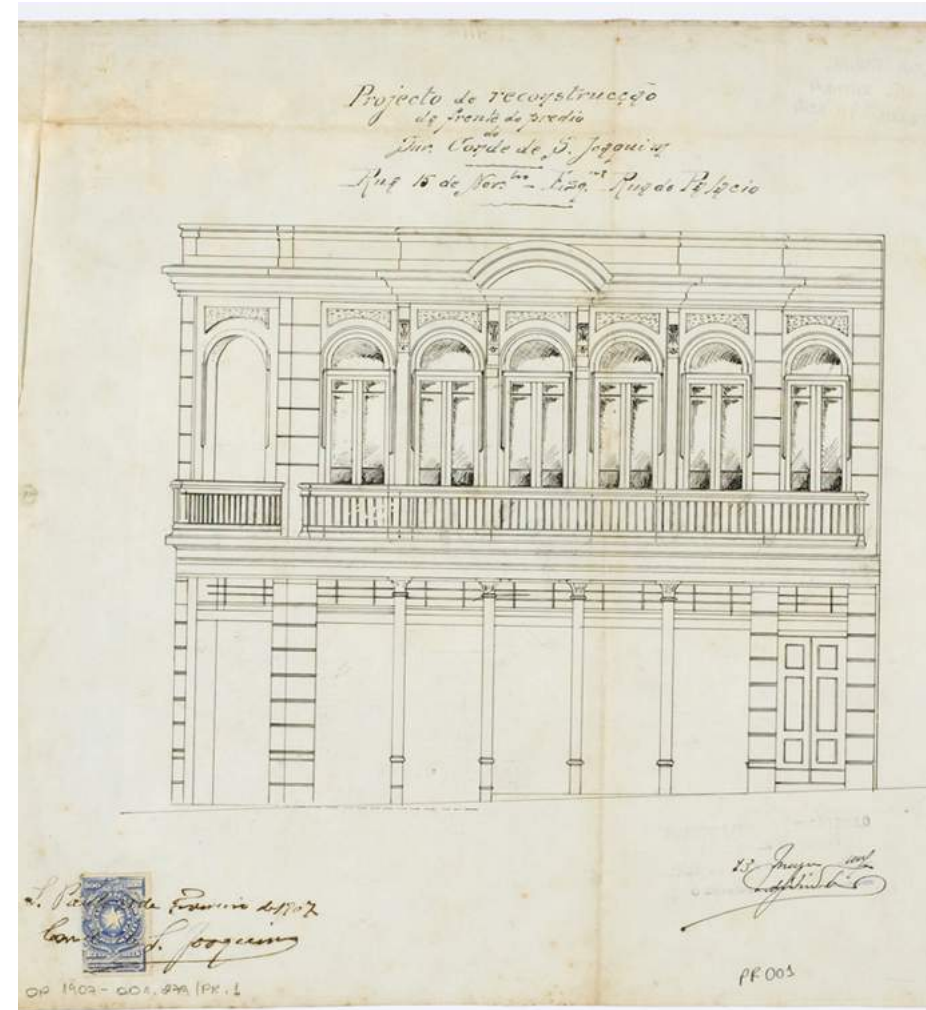 Projecto de reconstrucção
da frente do predio
do
Snr. Conde de S. Joaquim
Rua 15 de Nov.bro - Esq. Rua do Palacio
S. Paulo de Fevereiro de 1907
Conde de S. Joaquim
OP 1907 - DOC. 279 / PR. 1
PR 001